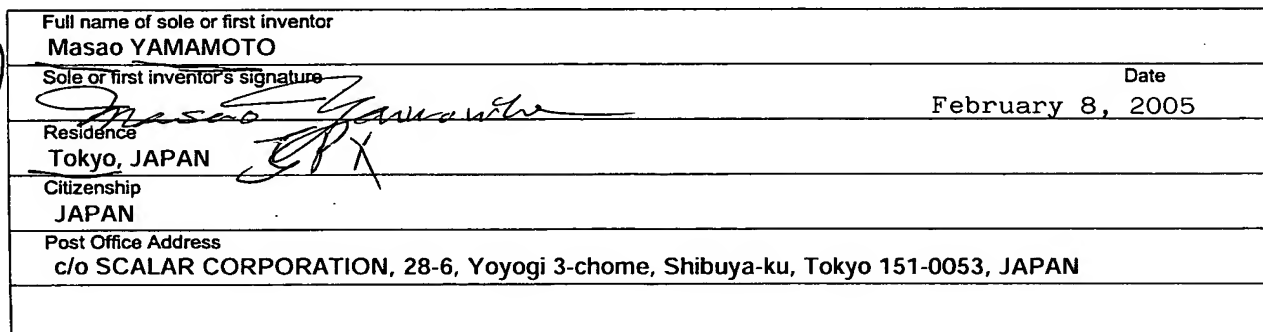 Full name of sole or first inventor
Masao YAMAMOTO
Sole or first inventor's signature
Date
Masao Yamamoto
February 8, 2005
Residence
Tokyo, JAPAN
JPX
Citizenship
JAPAN
Post Office Address
c/o SCALAR CORPORATION, 28-6, Yoyogi 3-chome, Shibuya-ku, Tokyo 151-0053, JAPAN